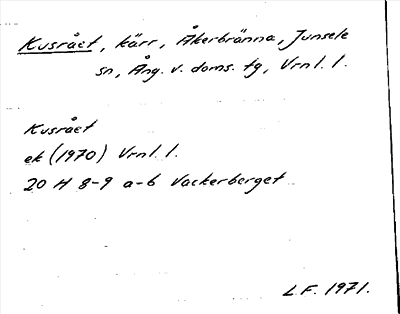 Kusrået, kärr, Åkerbränna, Junsele
sn, Ång. v. doms. tg, Vrnl. l.
Kusrået
ek (1970) Vrnl. l.
20 H 8-9 a-b Vackerberget
L.F. 1971.